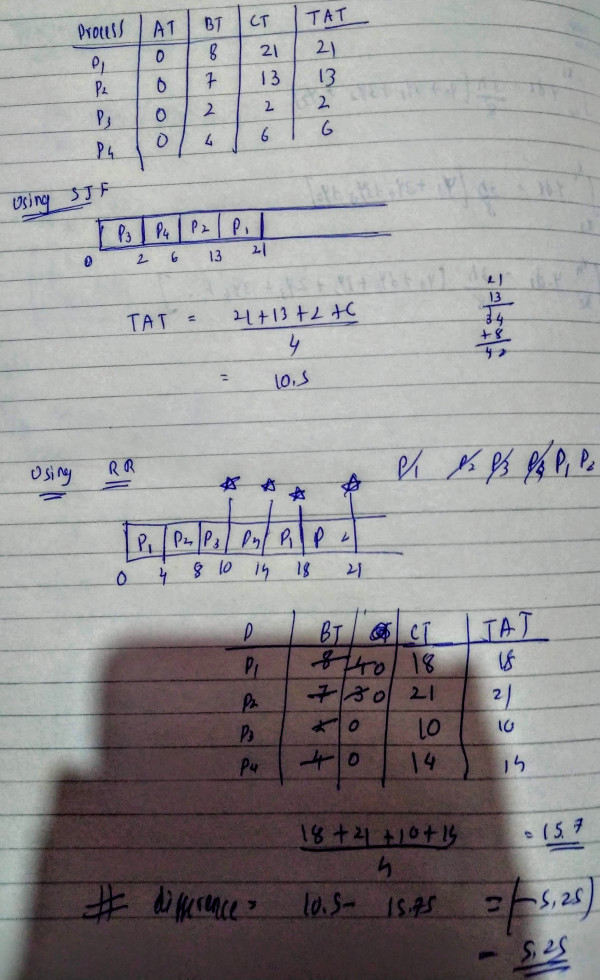 Process AT BT CT TAT
P1 0 8 21 21
P2 0 7 13 13
P3 0 2 2 2
P4 0 4 6 6
Using SJF
P3 P4 P2 P1
0 2 6 13 21
TAT = 21+13+2+6
4
= 10.5
21
13
34
+8
42
Using RR
P1 P2 P3 P4 P1 P2
P1 P2 P3 P4 P1 P2
0 4 8 10 14 18 21
P BT CT TAT
P1 8 4 0 18 18
P2 7 3 0 21 21
P3 2 0 10 10
P4 4 0 14 14
18+21+10+14 = 15.7
4
# difference = 10.5 - 15.75 = (-5.25)
= 5.25